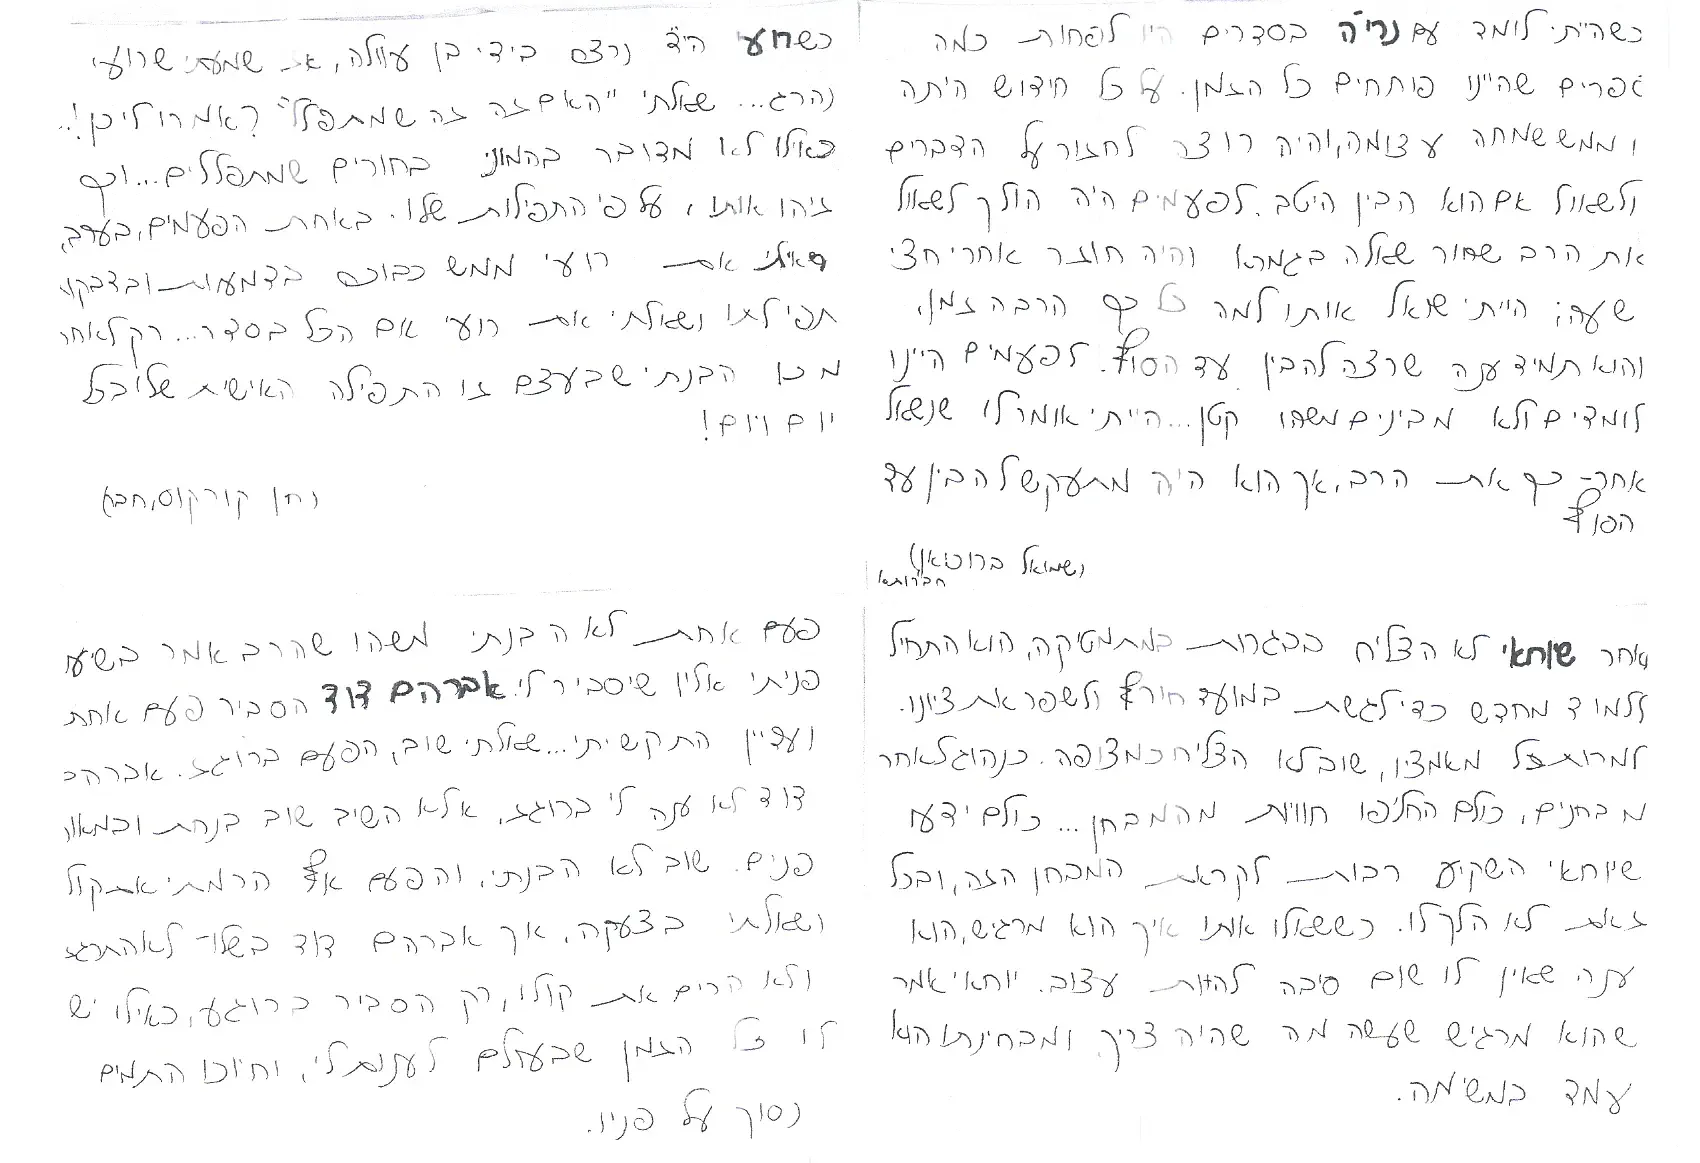 כשהייתי לומד עם נריה בסדרים היו לפחות כמה
ספרים שהיינו פותחים כל הזמן. על כל חידוש היתה
ממש שמחה עצומה, והיה רוצה לחזור על הדברים
ולשאול אם הוא הבין היטב. לפעמים היה הולך לשאול
את הרב שחור שאלה בגמרא והיה חוזר אחרי חצי
שעה; הייתי שואל אותו למה כל כך הרבה זמן,
והוא תמיד ענה שרצה להבין עד הסוף. לפעמים היינו
לומדים ולא מבינים משהו קטן... הייתי אומר לו שנשאל
אחר- כך את הרב, אך הוא היה מתעקש להבין עד
הסוף
(שמואל ברוטמאן)
חברותא
כשרועי הי"ד נרצח בידי בן עוולה, אז שמעתי שרועי
נהרג... שאלתי "האם זה זה שמתפלל"? אמרו לי כן!..
כאילו לא מדובר בהמוני בחורים שמתפללים... וכך
זיהו אותו, על פי התפילות שלו. באחת הפעמים, בערב,
ראיתי את רועי ממש כבוכה בדמעות ובדבקות
תפילתו ושאלתי את רועי אם הכל בסדר... רק לאחר
מכן הבנתי שבעצם זו התפילה האישית שלו בכל
יום ויום!
(חן קורקוס, חבר)
אחר שיוחאי לא הצליח בבגרות במתמטיקה, הוא התחיל
ללמוד מחדש כדי לגשת במועד חורף ולשפר את ציונו.
למרות כל מאמציו, שוב לא הצליח כמצופה. כנהוג לאחר
מבחנים, כולם החליפו חוויות מהמבחן... כולם ידעו
שיוחאי השקיע רבות לקראת המבחן הזה, ובכל
זאת לא הלך לו. כששאלו אותו איך הוא מרגיש, הוא
ענה שאין לו שום סיבה להיות עצוב. יוחאי אמר
שהוא מרגיש שעשה מה שהיה צריך ומבחינתו הוא
עמד במשימה.
פעם אחת לא הבנתי משהו שהרב אמר בשיעור
פניתי אליו שיסביר לי. אברהם דוד הסביר פעם אחת
ועדיין התקשיתי... שאלתי שוב, הפעם ברוגז. אברהם
דוד לא ענה לי ברוגז, אלא השיב שוב בנחת ובמאור
פנים. שוב לא הבנתי, והפעם אף הרמתי את קולי
ושאלתי בצעקה, אך אברהם דוד בשלו- לא התרגז
ולא הרים את קולו, רק הסביר ברוגע, כאילו יש
לו כל הזמן שבעולם לענות לי, וחיוכו התמים
נסוך על פניו.